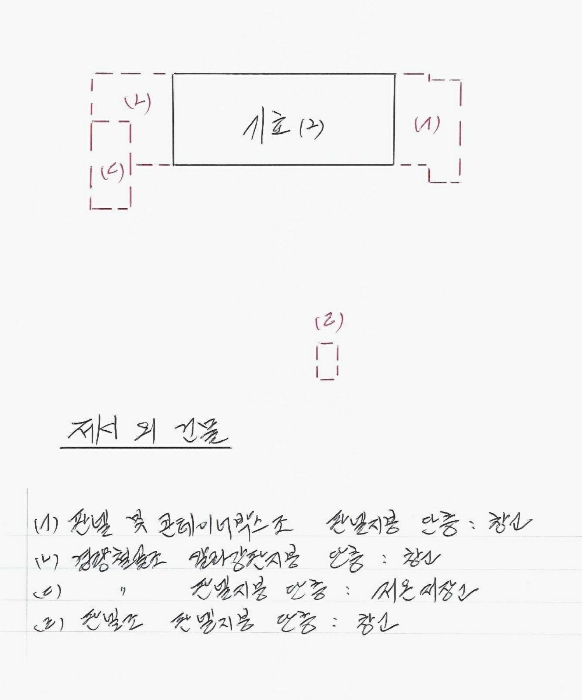 (ㄴ) 기호(2) (ㄱ)
(ㄷ)
(ㄹ)
제시 외 건물
(ㄱ) 판넬 및 콘테이너박스조 판넬지붕 단층 : 창고
(ㄴ) 경량철골조 칼라강판지붕 단층 : 창고
(ㄷ) " 판넬지붕 단층 : 저온저장고
(ㄹ) 판넬조 판넬지붕 단층 : 창고